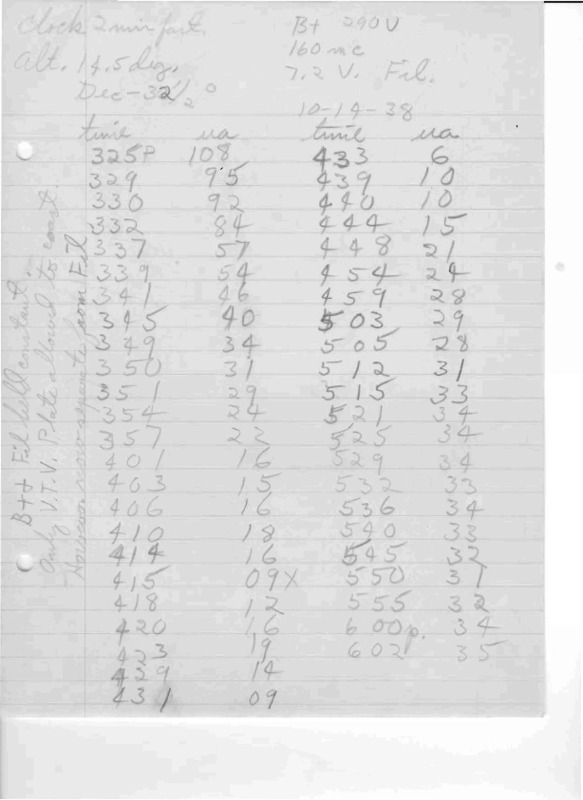 Clock 2 min fast.
Alt. 14.5 deg.
Dec -32 1/2°
B+ 290V
160 mc
7.2 V. Fil.
10-14-38
time ua
325P 108
329 95
330 92
332 84
337 57
339 54
341 46
345 40
349 34
350 31
351 29
354 24
357 22
401 16
403 15
406 16
410 18
414 16
415 09X
418 12
420 16
423 19
429 14
431 09
time ua
433 6
439 10
440 10
444 15
448 21
454 24
459 28
503 29
505 28
512 31
515 33
521 34
525 34
529 34
532 33
536 34
540 33
545 32
550 31
555 32
600p. 34
602 35
B++ Fil held constant.
Only V.T.V. Plate allowed to coast.
However now separate from Fil